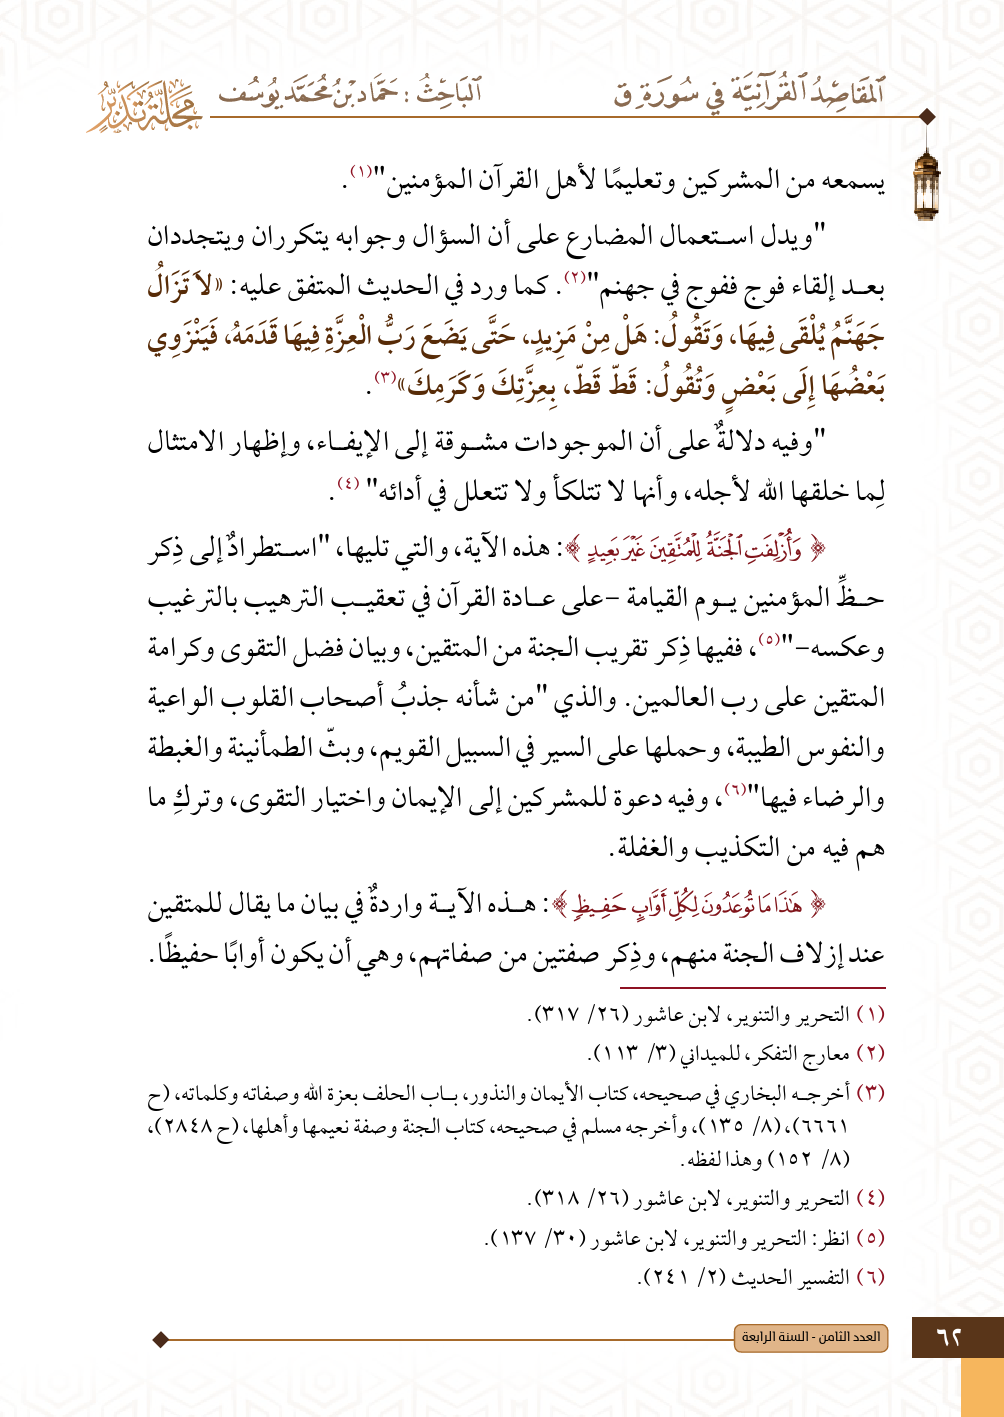 ٱلْمَقَاصِدُ ٱلْقُرْآنِيَّة فِي سُورَةِ ق
ٱلْبَاحِثُ : حَمَّاد بْنُ مُحَمَّد يُوسُف
مَجَلَّة تَدَبُّر
يسمعه من المشركين وتعليمًا لأهل القرآن المؤمنين"(١).
"ويدل استعمال المضارع على أن السؤال وجوابه يتكرران ويتجددان
بعد إلقاء فوج ففوج في جهنم"(٢). كما ورد في الحديث المتفق عليه: «لاَ تَزَالُ
جَهَنَّمُ يُلْقَى فِيهَا، وَتَقُولُ: هَلْ مِنْ مَزِيدٍ، حَتَّى يَضَعَ رَبُّ الْعِزَّةِ فِيهَا قَدَمَهُ، فَيَنْزَوِي
بَعْضُهَا إِلَى بَعْضٍ وَتُقُولُ: قَطّ قَطّ، بِعِزَّتِكَ وَكَرَمِكَ»(٣).
"وفيه دلالةٌ على أن الموجودات مشوقة إلى الإيفاء، وإظهار الامتثال
لِما خلقها الله لأجله، وأنها لا تتلكأ ولا تتعلل في أدائه" (٤).
﴿ وَأُزْلِفَتِ ٱلْجَنَّةُ لِلْمُتَّقِينَ غَيْرَ بَعِيدٍ ﴾: هذه الآية، والتي تليها، "استطرادٌ إلى ذِكر
حظِّ المؤمنين يوم القيامة -على عادة القرآن في تعقيب الترهيب بالترغيب
وعكسه-"(٥)، ففيها ذِكر تقريب الجنة من المتقين، وبيان فضل التقوى وكرامة
المتقين على رب العالمين. والذي "من شأنه جذبُ أصحاب القلوب الواعية
والنفوس الطيبة، وحملها على السير في السبيل القويم، وبثّ الطمأنينة والغبطة
والرضاء فيها"(٦)، وفيه دعوة للمشركين إلى الإيمان واختيار التقوى، وتركِ ما
هم فيه من التكذيب والغفلة.
﴿ هَٰذَا مَا تُوعَدُونَ لِكُلِّ أَوَّابٍ حَفِيظٍ ﴾: هذه الآية واردةٌ في بيان ما يقال للمتقين
عند إزلاف الجنة منهم، وذِكر صفتين من صفاتهم، وهي أن يكون أوابًا حفيظًا.
(١) التحرير والتنوير، لابن عاشور (٢٦/ ٣١٧).
(٢) معارج التفكر، للميداني (٣/ ١١٣).
(٣) أخرجه البخاري في صحيحه، كتاب الأيمان والنذور، باب الحلف بعزة الله وصفاته وكلماته، (ح
٦٦٦١)، (٨/ ١٣٥)، وأخرجه مسلم في صحيحه، كتاب الجنة وصفة نعيمها وأهلها، (ح ٢٨٤٨)،
(٨/ ١٥٢) وهذا لفظه.
(٤) التحرير والتنوير، لابن عاشور (٢٦/ ٣١٨).
(٥) انظر: التحرير والتنوير، لابن عاشور (٣٠/ ١٣٧).
(٦) التفسير الحديث (٢/ ٢٤١).
٦٢
العدد الثامن - السنة الرابعة